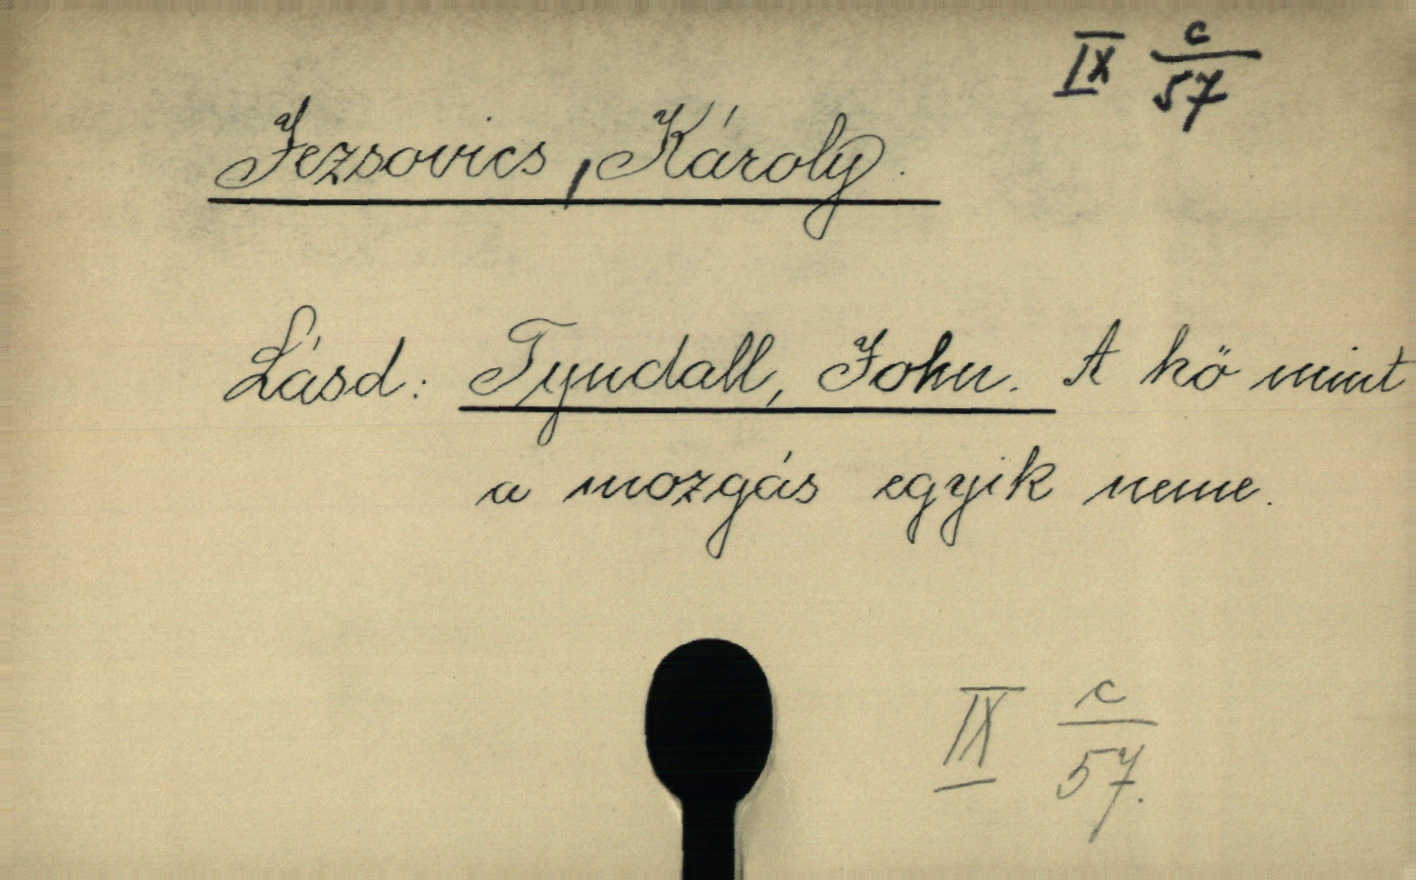 IX c/57
Jezsovics, Károly.
Lásd: Tyndall, John. A hő mint
a mozgás egyik neme.
IX c/57.